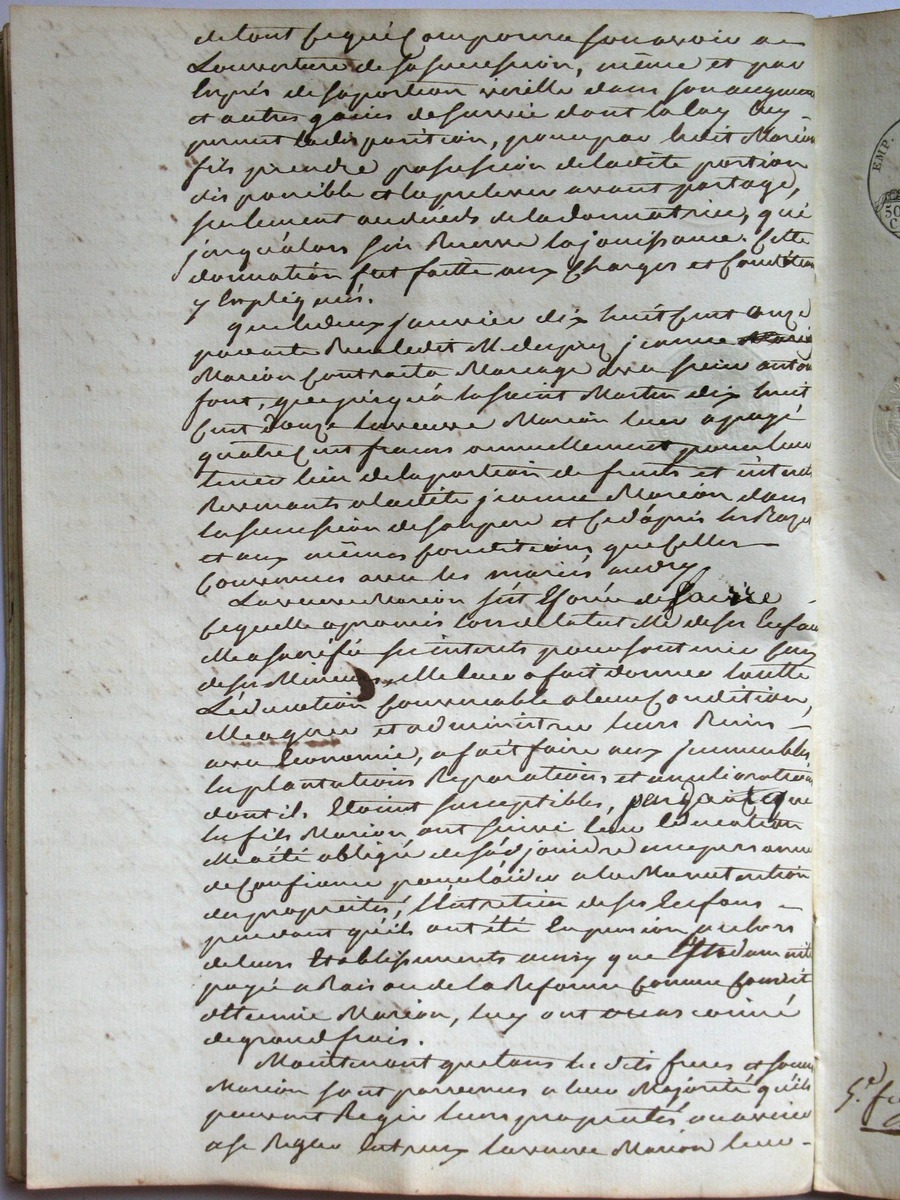 de tout ce qui composera son avoir a
L'ouverture de sa succession, même et par
Exprés de sa portion virille dans son augment
et autres gains de survie dont la loy luy
permet la disposition, pour par ledit Marion
fils prendre possession de ladite portion
disponible et la prelever avant partage,
seulement au deceds de la donnatrice, qui
jusqu'alors s'en Reserve la jouissance. Cette
donnation fut faitte aux Charges et Conditions
y Expliqueés.
Que le deux janvier dix huit cent onze
pardevant ledit Me jeanne
Marion Contracta Mariage avec sieur antoi
font, que jusqu'a la saint Martin dix huit
cent douze la veuve Marion leur a payé
quatre cent francs annuellement pour leur
tenir lieu de la portion de fruits et interets
Revenants a ladite jeanne Marion dans
la succession de son pere et ce d'après les Bazes
et aux mêmes conditions que celles
Convenues avec les mariés audry
La veuve Marion s'est Efforcée de faire
ce quelle a promis lors de l'acte de ses Enfans
Elle a sacrifié ses interets pour soutenir ceux
de ses Mineurs, Elle leur a fait donner toutte
L'education Convenable a leur Condition,
Elle a geré et administré leurs Biens
avec Economie, a fait faire aux jmmeubles
les plantations Reparations et ameliorations
dont ils Etoient susceptibles, pendant que
les fils Marion ont suivi leur Education
Elle a été obligée de s'adjoindre une personne
de Confiance pour l'aider a la Manutention
des propriétés, l'Entretien de ses Enfans
pendant qu'ils ont été En pension ou hors
de leurs Etablissements ainsy que l'Indamnité
payé a Raison de la Reforme comme conscrit
d'Etienne Marion, luy ont occasionné
de grand frais.
Maintenant que tous lesdits freres et soeurs
Marion sont parvenus a leur Majorité qu'ils
peuvent Regir leurs propriétés,
a se Regler entreux la veuve Marion leur
EMP.
50
C